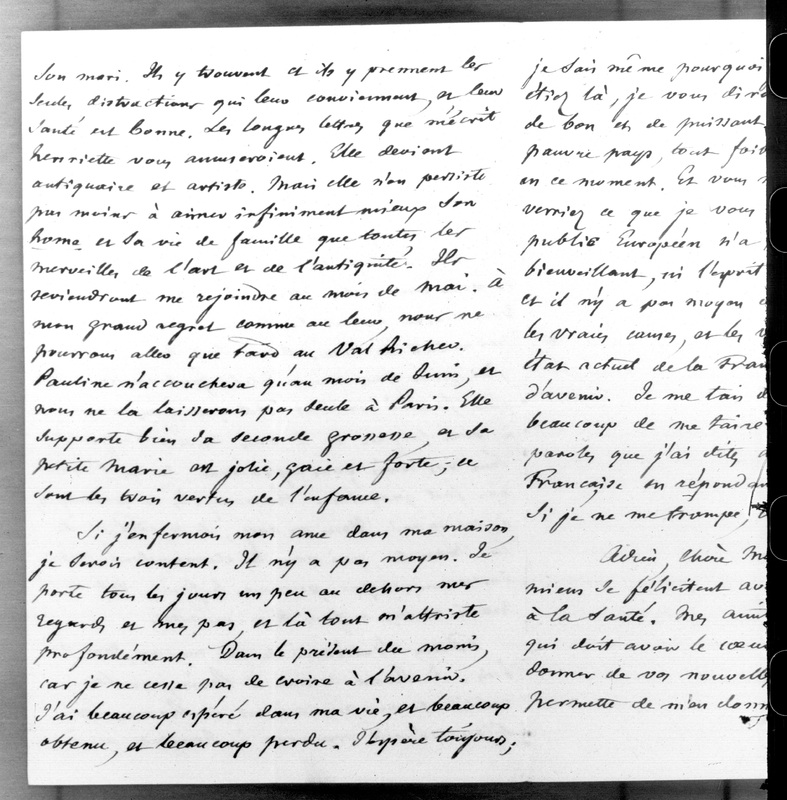 son mari. Ils y trouvent et ils y prennent les
seules distractions qui leur conviennent, et leur
santé est bonne. Les longues lettres que m'écrit
henriette vous amuseroient. Elle devient
antiquaire et artiste. Mais elle n'en persiste
pas moins à aimer infiniment mieux son
home et sa vie de famille que toutes les
merveilles de l'art et de l'antiquité. Ils
reviendront me rejoindre au mois de mai. à
mon grand regret comme au leur, nous ne
pourrons aller que tard au Val Richer.
Pauline n'accouchera qu'au mois de Juin, et
nous ne la laisserons pas seule à Paris. Elle
supporte bien sa seconde grossesse, et sa
petite Marie est jolie, gaie et forte; ce
sont les trois vertus de l'enfance.
Si j'enfermois mon ame dans ma maison,
je serois content. Il n'y a pas moyen. Je
porte tous les jours un peu au dehors mes
regards et mes pas, et là tout m'attriste
profondément. Dans le présent du moins,
car je ne cesse pas de croire à l'avenir.
J'ai beaucoup espéré dans ma vie, et beaucoup
obtenu, et beaucoup perdu. J'espère toujours;
je sais même pourquoi
étiez là, je vous dir
de bon et de puissant
pauvre pays, tout foib
en ce moment. Et vous
verriez ce que je vous
public Européen n'a
bienveillant, ni l'esprit
et il n'y a pas moyen
les vraies causes, et les v
état actuel de la Fran
d'avenir. Je me tais d
beaucoup de me taire
paroles que j'ai dites
Française en répondan
Si je ne me trompe,
Adieu, chère M
miens se félicitent av
à la santé. Mes ami
qui doit avoir le cœu
donner de vos nouvelle
permette de m'en donn